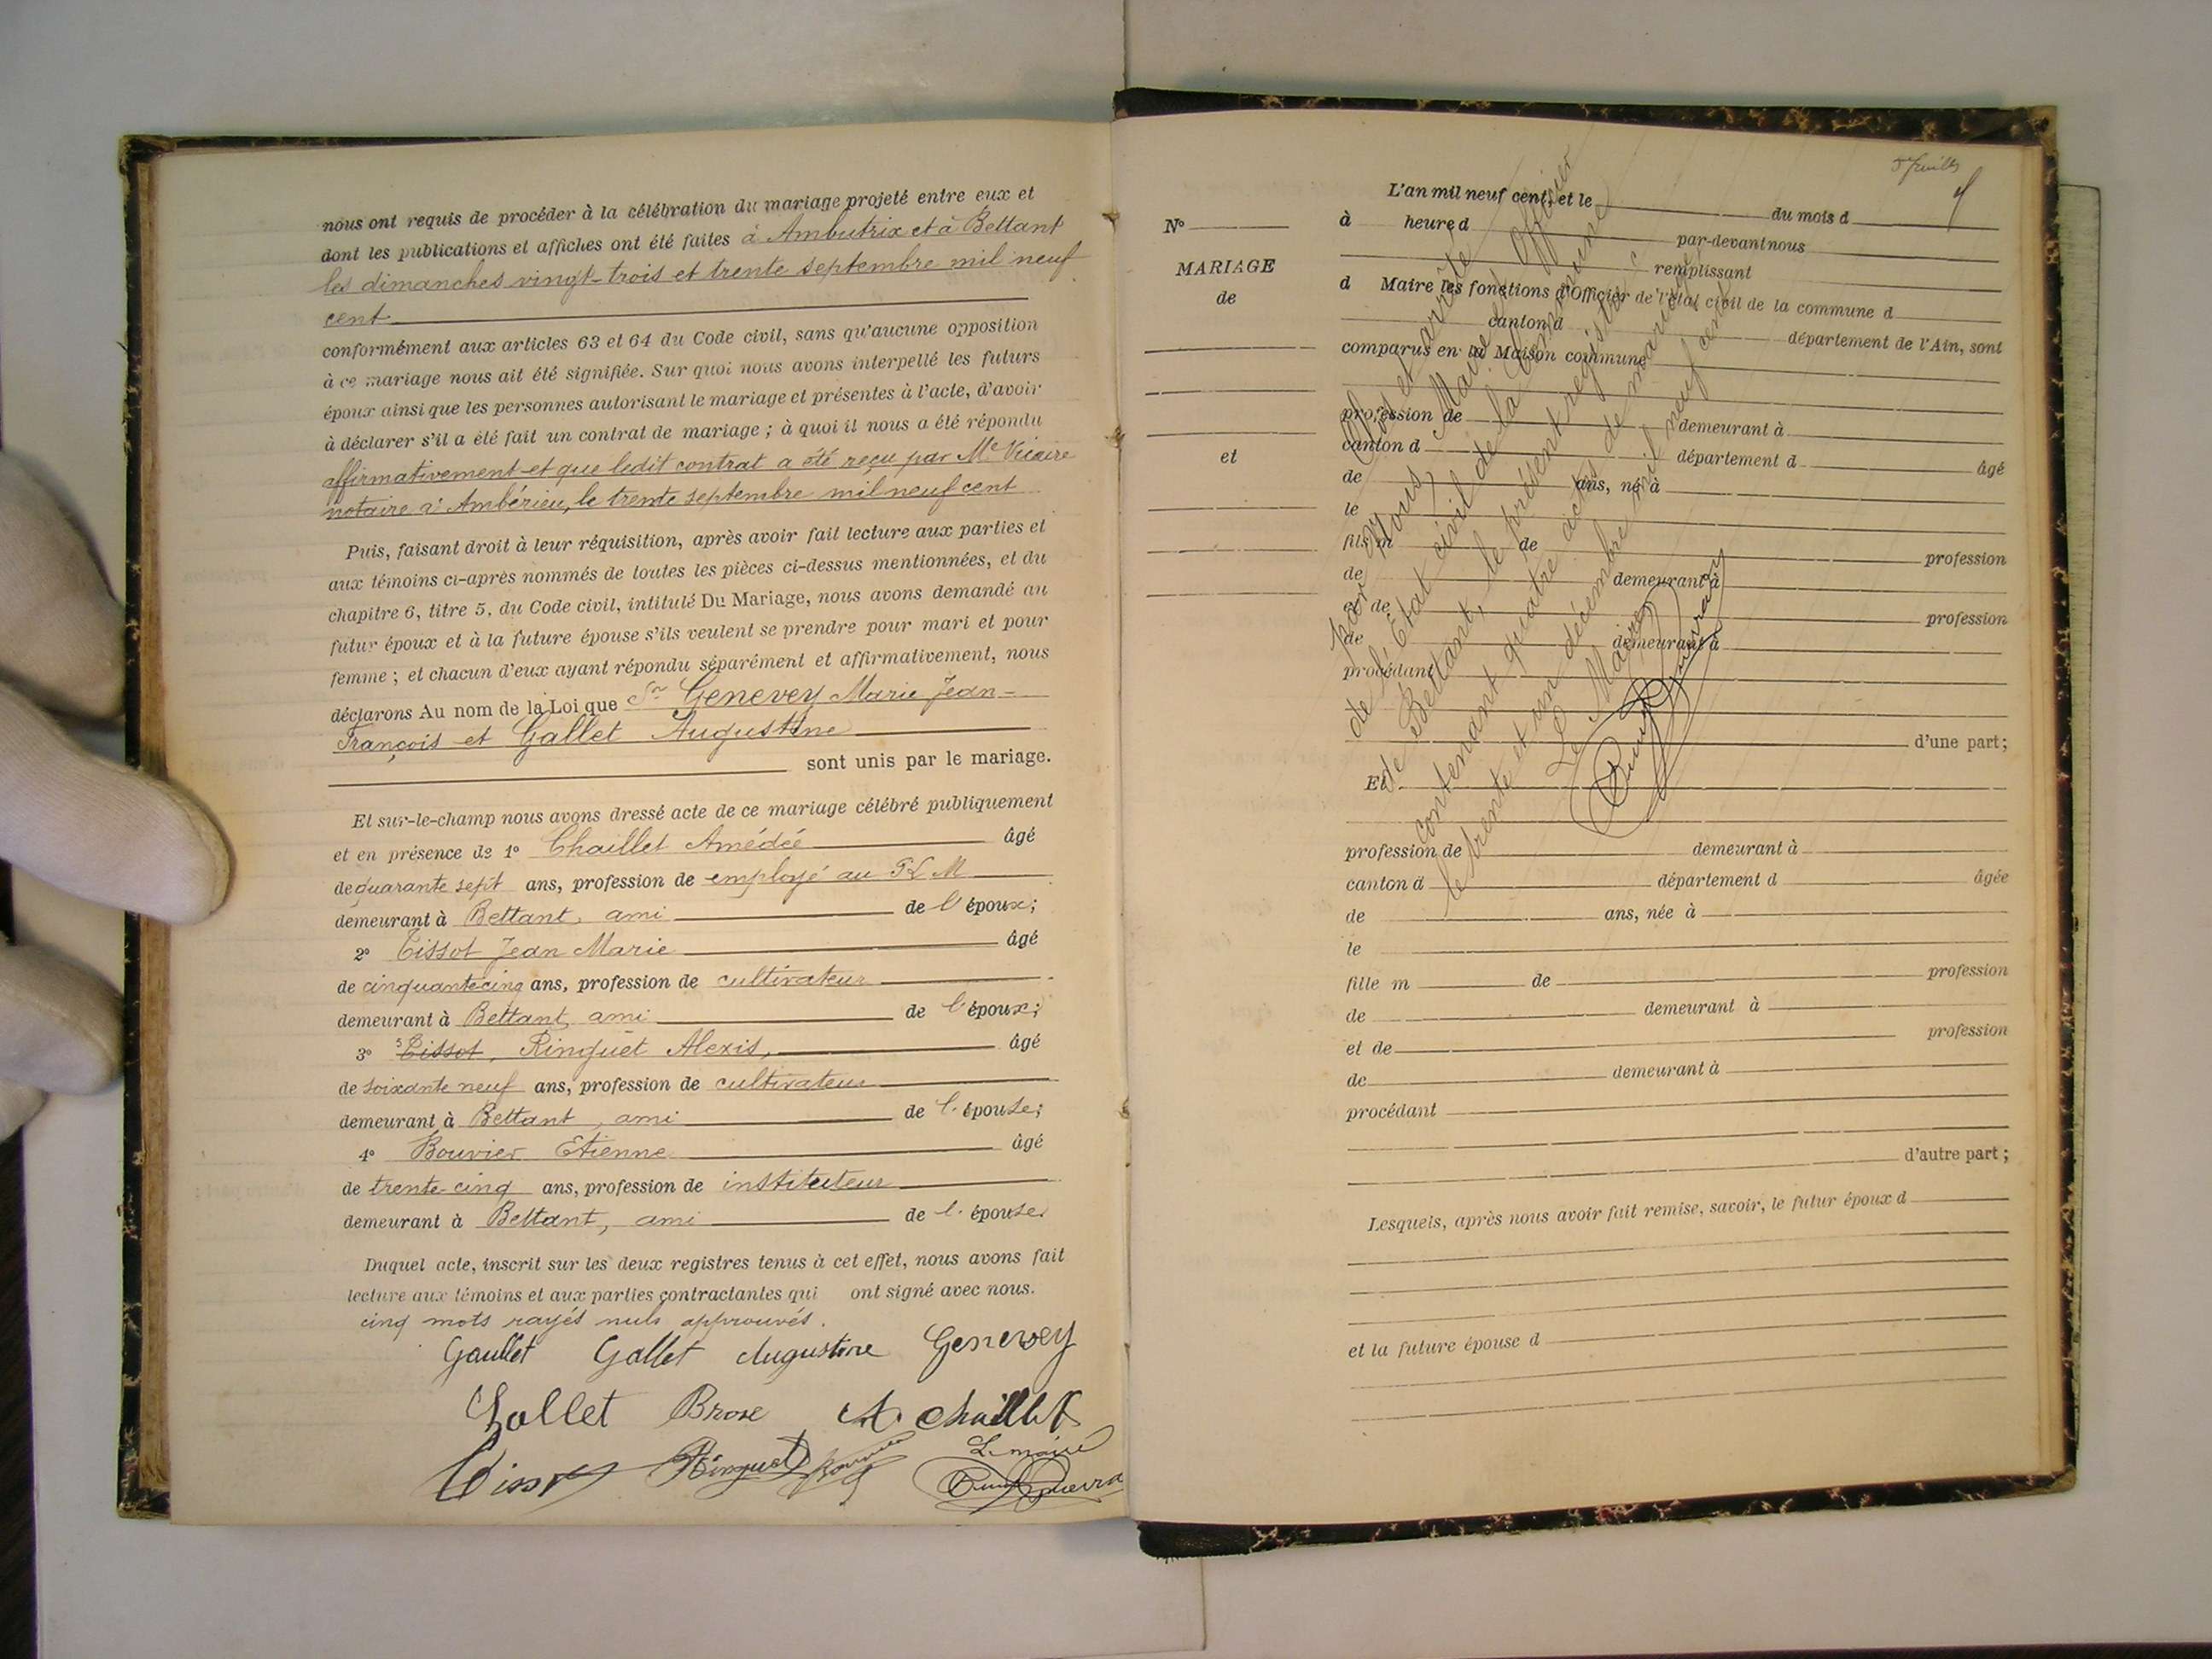 nous ont requis de procéder à la célébration du mariage projeté entre eux et
dont les publications et affiches ont été faites à Ambutrix et à Bettant
les dimanches vingt-trois et trente septembre mil neuf
cent
conformément aux articles 63 et 64 du Code civil, sans qu'aucune opposition
à ce mariage nous ait été signifiée. Sur quoi nous avons interpellé les futurs
époux ainsi que les personnes autorisant le mariage et présentes à l'acte, d'avoir
à déclarer s'il a été fait un contrat de mariage ; à quoi il nous a été répondu
affirmativement et que ledit contrat a été reçu par Me Vicaire
notaire à Ambérieu, le trente septembre mil neuf cent
Puis, faisant droit à leur réquisition, après avoir fait lecture aux parties et
aux témoins ci-après nommés de toutes les pièces ci-dessus mentionnées, et du
chapitre 6, titre 5, du Code civil, intitulé Du Mariage, nous avons demandé au
futur époux et à la future épouse s'ils veulent se prendre pour mari et pour
femme ; et chacun d'eux ayant répondu séparément et affirmativement, nous
déclarons Au nom de la Loi que Sr Genevey Marie Jean-
François et Gallet Augustine
sont unis par le mariage.
Et sur-le-champ nous avons dressé acte de ce mariage célébré publiquement
et en présence de 1° Chaillet Amédée âgé
de quarante sept ans, profession de employé au P L M
demeurant à Bettant, ami de l'époux;
2° Tissot Jean Marie âgé
de cinquante cinq ans, profession de cultivateur
demeurant à Bettant, ami de l'époux;
3° Tissot, Ringuet Alexis, âgé
de soixante neuf ans, profession de cultivateur
demeurant à Bettant, ami de l'épouse;
4° Bouvier Etienne âgé
de trente-cinq ans, profession de instituteur
demeurant à Bettant, ami de l'épouse.
Duquel acte, inscrit sur les deux registres tenus à cet effet, nous avons fait
lecture aux témoins et aux parties contractantes qui ont signé avec nous.
cinq mots rayés nuls approuvés.
Gallet Augustine Genevey
Gallet Brose A. Chaillet
Tissot Ringuet Bouvier Le maire
5 feuilles
L'an mil neuf cent, et le du mois d
N° à heure d par-devant nous
remplissant
MARIAGE
de
d Maire les fonctions d'Officier de l'état civil de la commune d
canton d département de l'Ain, sont
comparus en la Maison commune
profession de demeurant à
canton d département d âgé
et
de ans, né à
le
fils m de profession
de demeurant à
et de profession
de demeurant à
procédant
d'une part;
Et
profession de demeurant à
canton d département d âgée
de ans, née à
le
fille m de profession
de demeurant à
et de profession
de demeurant à
procédant
d'autre part;
Lesquels, après nous avoir fait remise, savoir, le futur époux d
et la future épouse d
Clos et arrêté
par Nous, Maire et Officier
de l'Etat civil de la Commune
de Bettant, le présent registre
contenant quatre actes de mariage
le trente et un décembre mil neuf cent
Le Maire